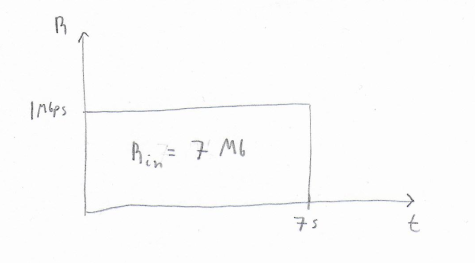 R
1Mbps
Rin = 7 Mb
7s
t